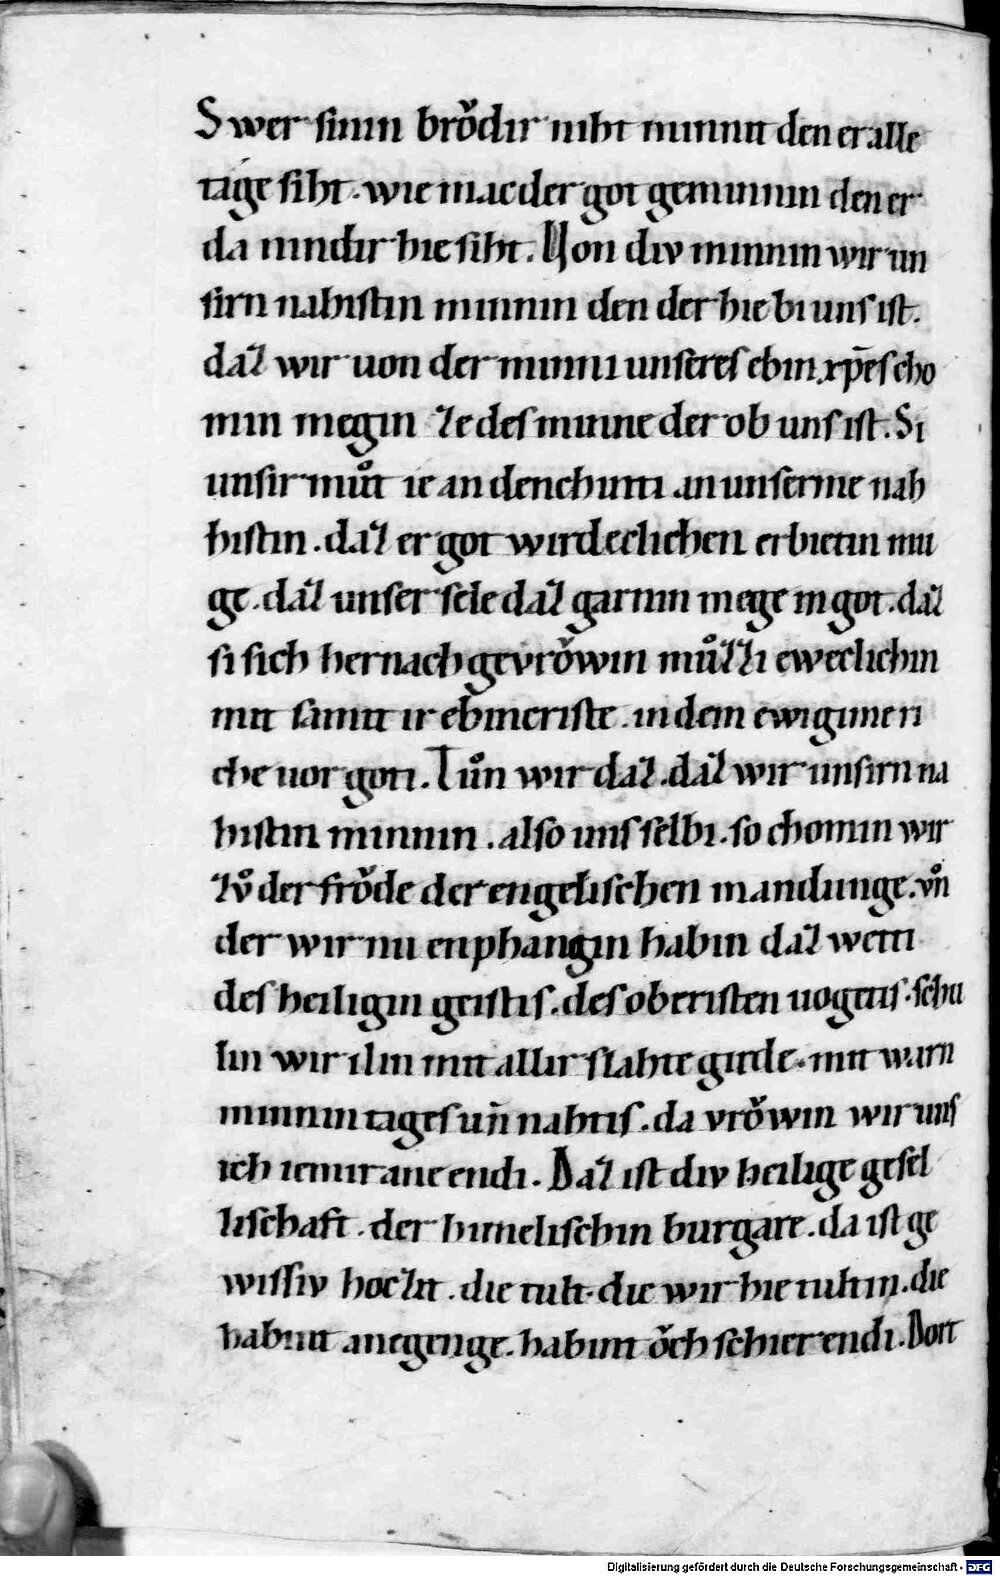 Swer sinin brǒdir niht minnit den er alle
tage siht. wie mac der got geminnin den er
da nindir hie siht. Von div minnin wir un
sirn nahistin minnin den der hie bi uns ist.
daz wir uon der minni unseres ebinxp̄es cho
min megin ze des minne der ob uns ist. Si
unsir můt ie an denchunti an unserme nah
histin. daz er got wirdeclichen erbietin mu
ge. daz unser sele daz garnin mege in got. daz
si sich hernach gevrǒwin můzzi eweclichin
mit samit ir ebincriste. in dem ewigime ri
che uor goti. Tůn wir daz. daz wir unsirn na
histin minnin. also uns selbi. so chomin wir
zů der frǒde der engelischen mandunge. vn̊
der wir nu enphangin habin daz wetti
des heiligin geistis. des oberisten uogetis. schu
lin wir ilin mit allir slahte girde. mit warn
minnin tages un̄ nahtis. da vrǒwin wir uns
ich iemir ane endi. Daz ist div heilige gesel
lischaft. der himelischin burgare. da ist ge
wissiv hoczit. die tult. die wir hie tultin. die
habint anegenge. habint ǒch schier endi. Dort
Digitalisierung gefördert durch die Deutsche Forschungsgemeinschaft - DFG